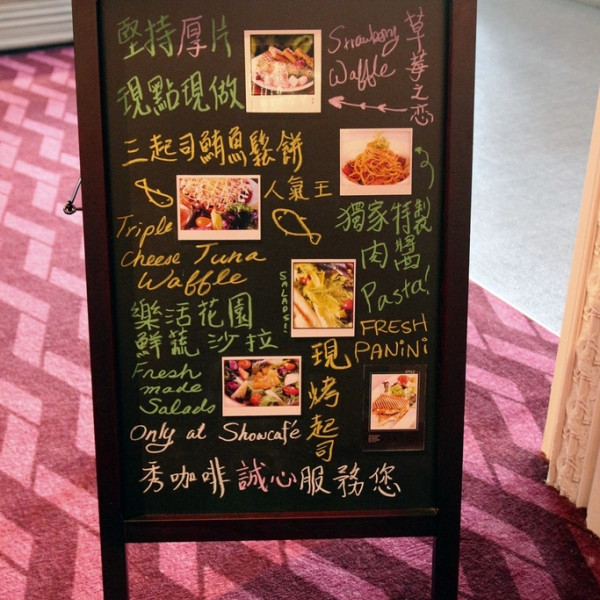 堅持厚片
現點現做
Strawberry
Waffle
草莓之恋
三起司鮪魚鬆餅
人氣王
Triple
Cheese Tuna
Waffle
獨家特製
肉醬
Pasta!
SALADS!
樂活花園
鮮蔬沙拉
Fresh
made
Salads
FRESH
PANiNi
現烤起司
Only at Showcafé
秀咖啡誠心服務您